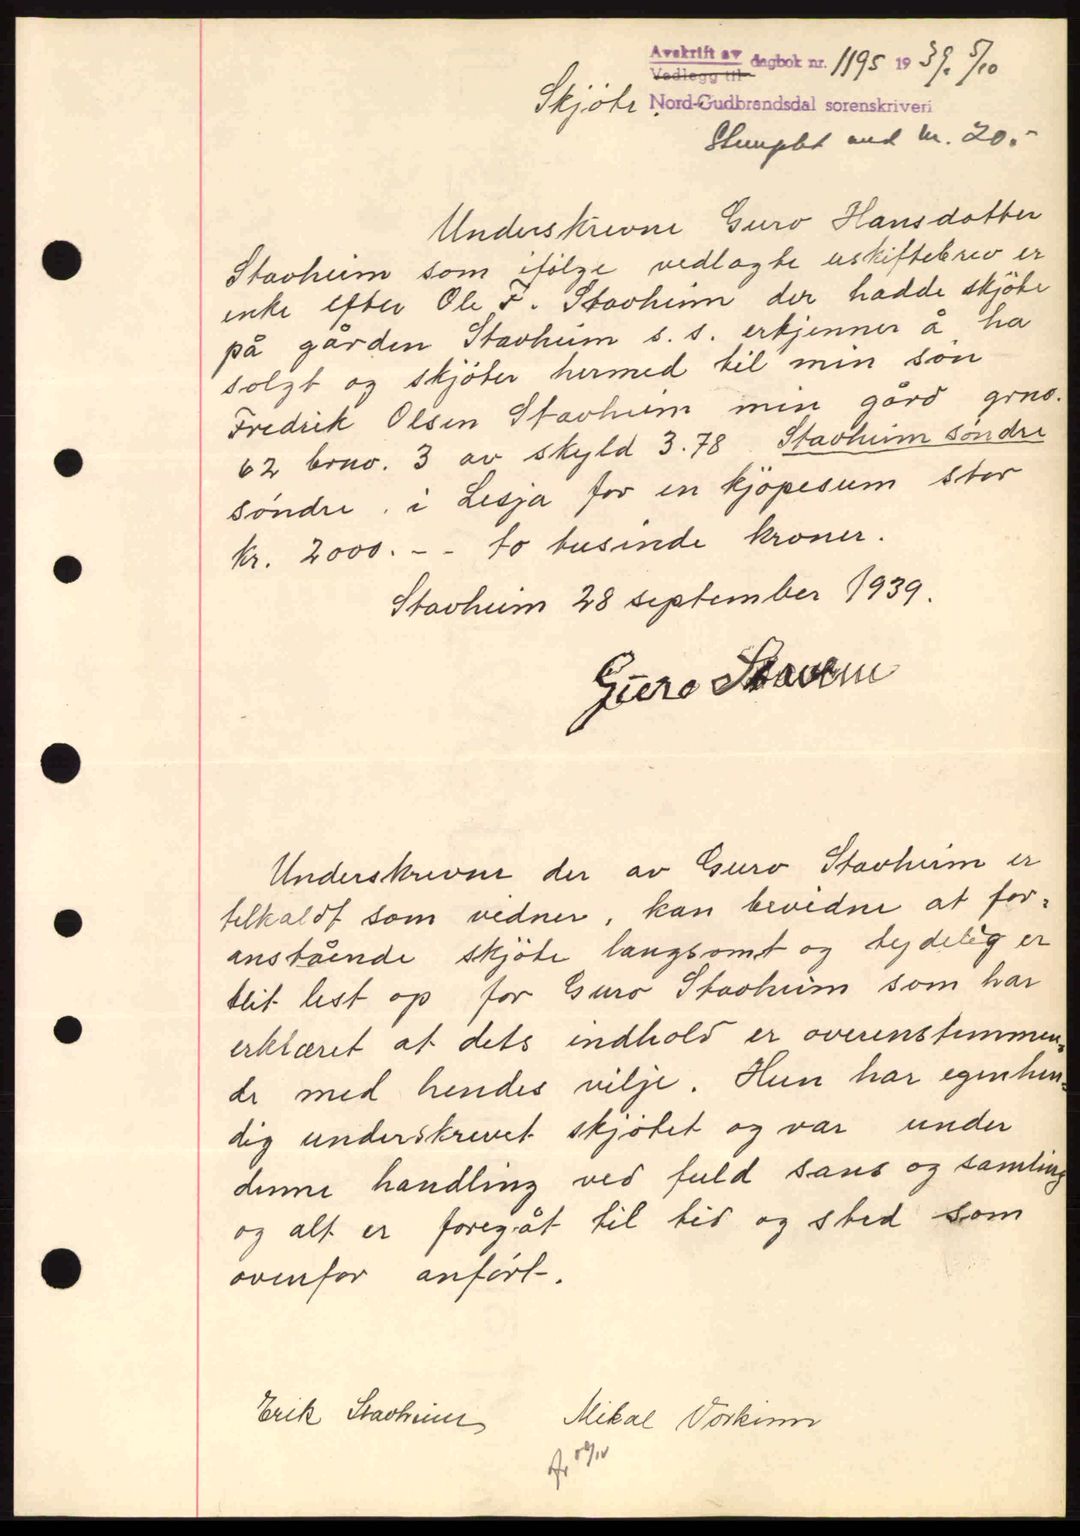 Avskrift av dagbok nr. 1195 19 39. 5/10
Vedlegg til
Skjöte. Nord-Gudbrandsdal sorenskriveri
Stemplet med kr. 20.-
Underskrevne Guro Hansdatter
Stavheim som ifölge vedlagte uskiftebrev er
enke efter Ole F. Stavheim der hadde skjöte
på gården Stavheim s. s. erkjenner å ha
solgt og skjöter hermed til min sön
Fredrik Olsen Stavheim min gård grno.
62 brno. 3 av skyld 3.78 Stavheim söndre
söndre . i Lesja for en kjöpesum stor
kr. 2000. - - to tusinde kroner.
Stavheim 28 september 1939.
Guro Stavem
Underskrevne der av Guro Stavheim er
tilkaldt som vidner, kan bevidne at for-
anstående skjöte langsomt og tydelig er
blit lest op for Guro Stavheim som har
erklæret at dets indhold er overenstemmen-
de med hendes vilje. Hun har egenhen-
dig underskrevet skjötet og var under
denne handling ved fuld sans og samling
og alt er foregåt til tid og sted som
ovenfor anfört.
Erik Stavheim Mikal Vorkinn